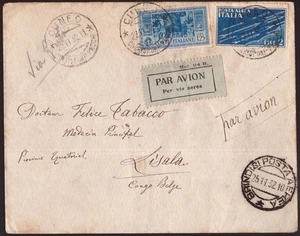 CUNEO
CUNEO
POSTE ITALIANE
POSTA AEREA
ITALIA
LIRE 2
PAR AVION
Per via aerea
Via
Dottore Felice Tabacco
Medecin Principal
Province Equatorial
Lisala
Congo Belge
par avion
BRINDISI POSTA AEREA
25.11.32.10